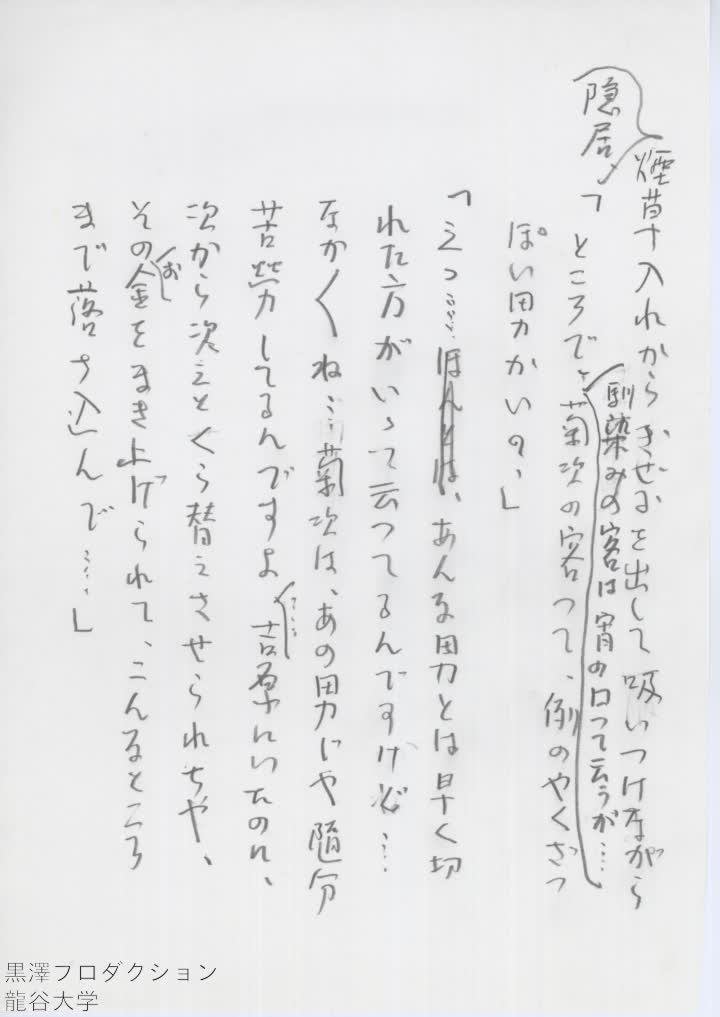 煙草入れからきせるを出して吸いつけながら
隠居「ところで、菊次の客って、例のやくざっ
馴染みの客は宵の口って云うが…
ぽい男かいの、」
「えゝ……ほんとは、あんな男とは早く切
れた方がいゝって云ってるんですけど…
なか〱ね…菊次は、あの男じや随分
苦労してるんですよ 吉原にいたのに、
次から次えとくら替えさせられちや、
その金をまき上げられて、こんなところ
お
まで落ち込んで……」
黒澤プロダクション
龍谷大学